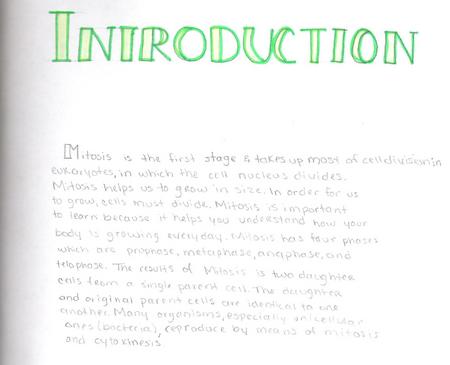 INTRODUCTION
Mitosis is the first stage & takes up most of cell division in
eukaryotes, in which the cell nucleus divides.
Mitosis helps us to grow in size. In order for us
to grow, cells must divide. Mitosis is important
to learn because it helps you understand how your
body is growing everyday. Mitosis has four phases
which are prophase, metaphase, anaphase, and
telophase. The results of Mitosis is two daughter
cells from a single parent cell. The daughter
and original parent cells are identical to one
another. Many organisms, especially unicellular
ones (bacteria), reproduce by means of mitosis
and cytokinesis.